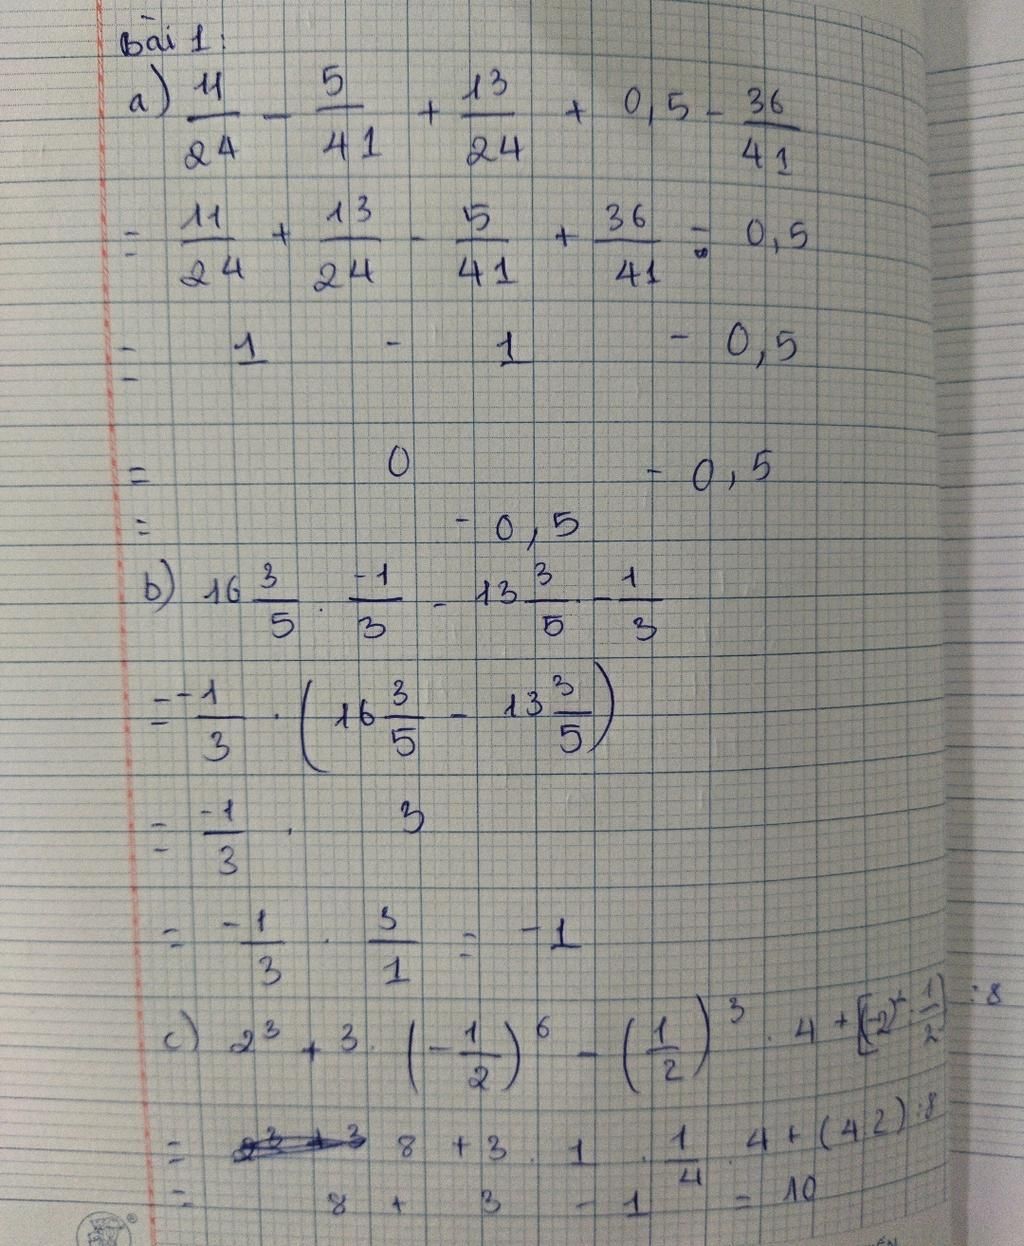 Bài 1:
a) 11/24 - 5/41 + 13/24 + 0,5 - 36/41
= 11/24 + 13/24 - 5/41 + 36/41 - 0,5
= 1 - 1 - 0,5
= 0 - 0,5
= - 0,5
b) 16 3/5 . -1/3 - 13 3/5 . -1/3
= -1/3 . (16 3/5 - 13 3/5)
= -1/3 . 3
= -1/3 . 3/1 = -1
c) 2³ + 3 . (-1/2)⁶ - (1/2)³ . 4 + [(-2)² : 1/2] : 8
= 8 + 3 . 1 . 1/4 . 4 + (4 2) : 8
= 8 + 3 - 1 = 10